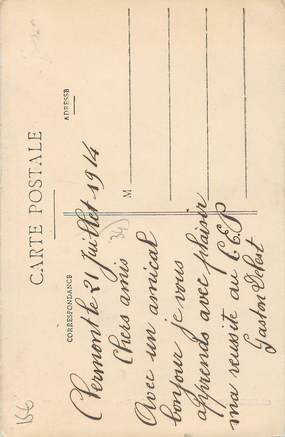 CARTE POSTALE
CORRESPONDANCE
ADRESSE
M
Clermont le 21 Juillet 1914
Chers amis
Avec un amical
bonjour je vous
apprends avec plaisir
ma reussite au C.E.P
Gaston Delest
34
166